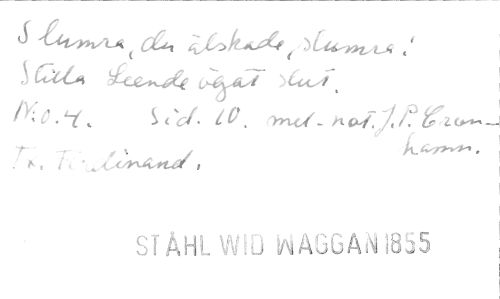 Slumra, du älskade, slumra!
Stilla leende ögat slut.
N:o. 4. Sid. 10. mel. not. J. P. Cron-
hamn.
Tx. Ferdinand.
STÅHL WID WAGGAN 1855